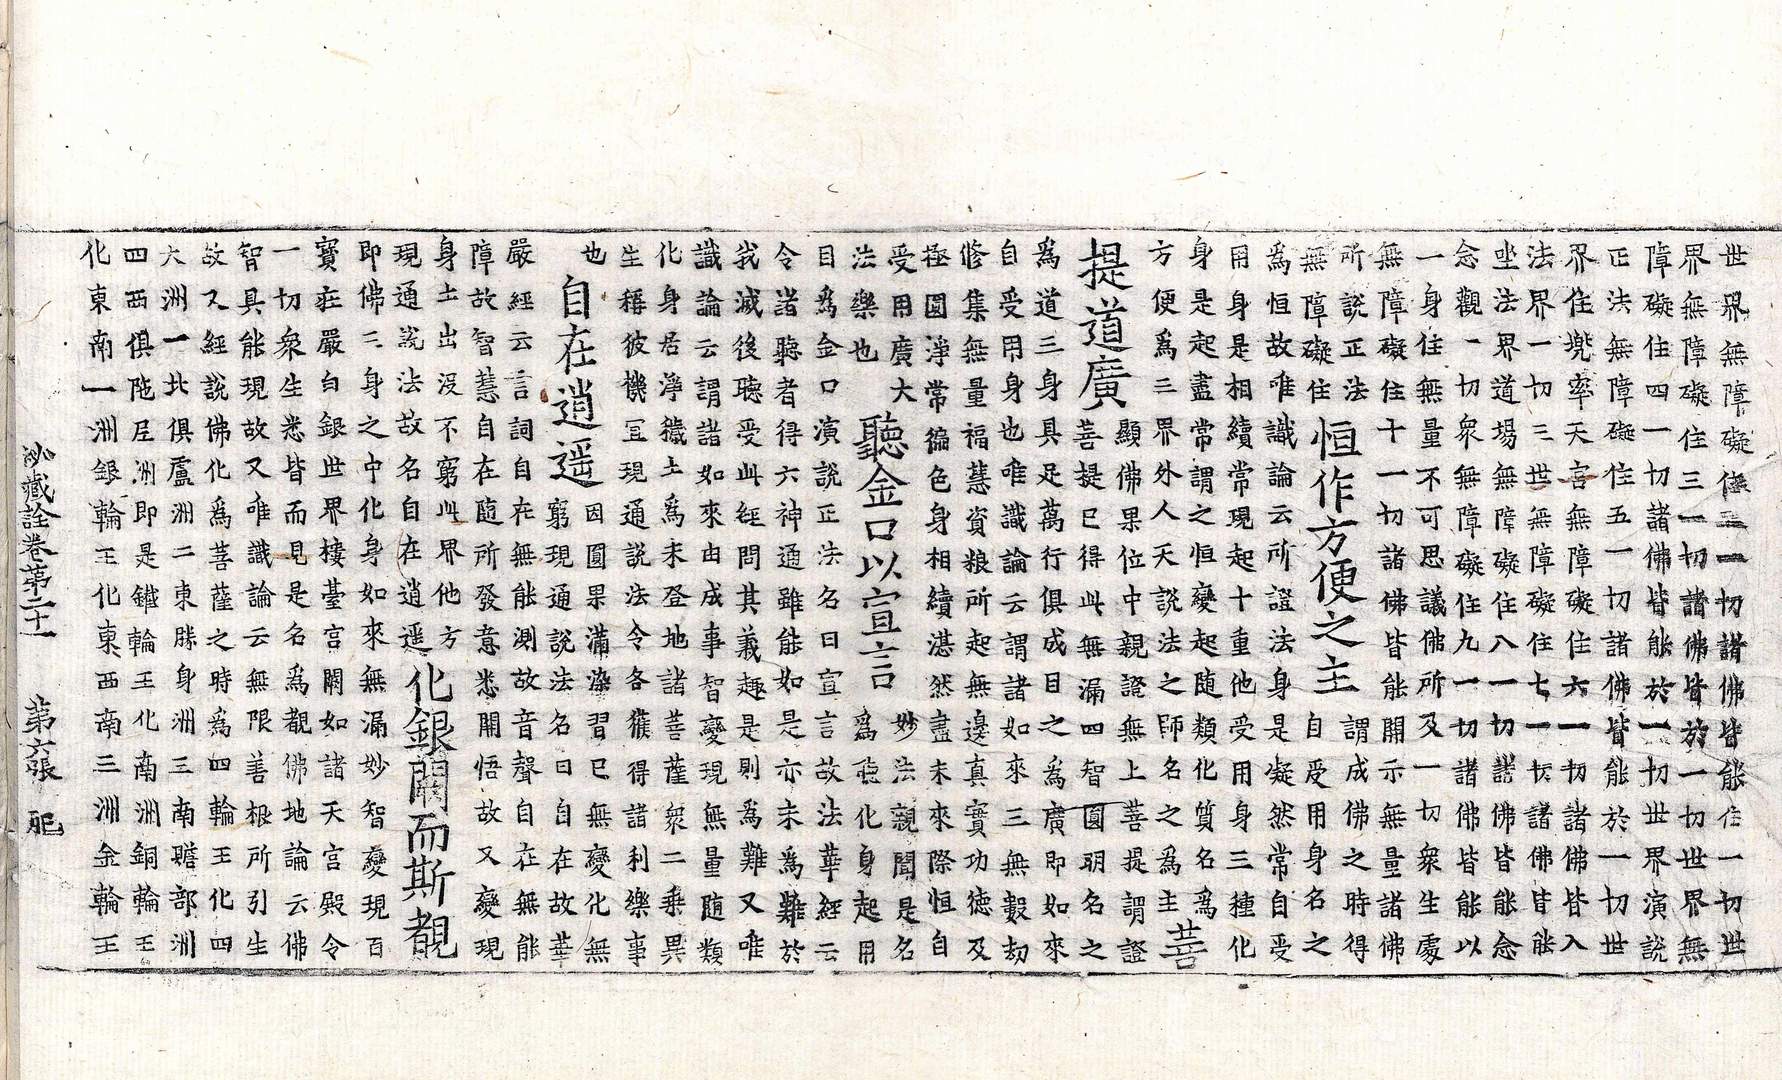 世界無障礙住二一切諸佛皆能住一切世
界無障礙住三一切諸佛皆於一切世界無
障礙住四一切諸佛皆能於一切世界演說
正法無障礙住五一切諸佛皆能於一切世
界住兜率天宮無障礙住六一切諸佛皆入
法界一切三世無障礙住七一切諸佛皆能
坐法界道場無障礙住八一切諸佛皆能念
念觀一切衆無障礙住九一切諸佛皆能以
一身住無量不可思議佛所及一切衆生處
無障礙住十一切諸佛皆能開示無量諸佛
所說正法
無障礙住
恒作方便之主
謂成佛之時得
自受用身名之
爲恒故唯識論云所證法身是凝然常自受
用身是相續常現起十重他受用身三種化
身是起盡常謂之恒變起随類化質名爲
方便爲三界外人天說法之師名之爲主
菩
提道廣
顯佛果位中親證無上菩提謂證
菩提已得此無漏四智圓明名之
爲道三身具足萬行俱成目之爲廣即如來
自受用身也唯識論云謂諸如來三無數劫
修集無量福慧資粮所起無邊真實功德及
極圓淨常徧色身相續湛然盡未來際恒自
受用廣大
法樂也
聽金口以宣言
妙法親聞是名
爲聽化身起用
目爲金口演說正法名曰宣言故法華經云
令諸聽者得六神通雖能如是亦未爲難於
我滅後聽受此經問其義趣是則爲難又唯
識論云謂諸如來由成事智變現無量随類
化身居淨穢土爲未登地諸菩薩衆二乘異
生稱彼機冝現通說法令各獲得諸利樂事
也
自在逍遥
因圓果滿染習已無變化無
窮現通說法名曰自在故華
嚴經云言詞自在無能測故音聲自在無能
障故智慧自在随所發意悉開悟故又變現
身土出没不窮此界他方
現通說法故名自在逍遥
化銀闕而斯覩
即佛三身之中化身如來無漏妙智變現百
寶莊嚴白銀世界樓臺宮闕如諸天宮殿令
一切衆生悉皆而見是名爲覩佛地論云佛
智具能現故又唯識論云無限善根所引生
故又經說佛化爲菩薩之時爲四輪王化四
大洲一北俱盧洲二東勝身洲三南贍部洲
四西俱陁尼洲即是鐵輪王化南洲銅輪王
化東南一洲銀輪王化東西南三洲金輪王
秘藏詮卷第二十一 第六張 肥